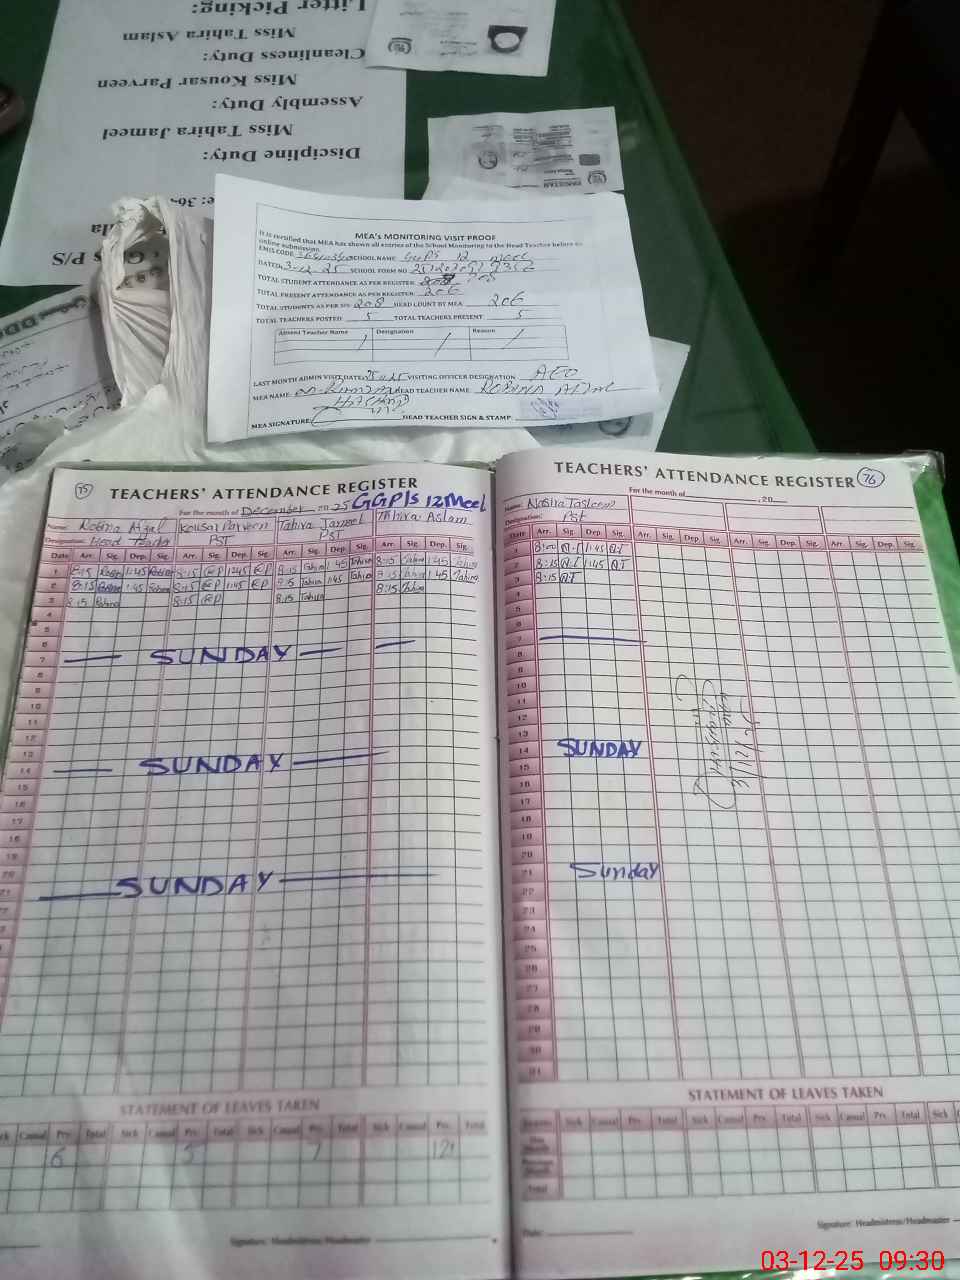 Litter Picking:
Miss Tahira Aslam
Cleanliness Duty:
Miss Kousar Parveen
Assembly Duty:
Miss Tahira Jameel
Discipline Duty:
P/S
PAKISTAN
MEA's MONITORING VISIT PROOF
It is certified that MEA has shown all entries of the School Monitoring to the Head Teacher before
online submission.
EMIS CODE: SCHOOL NAME GGPS 12 Meel
DATED: 3-12-25 SCHOOL FORM NO
TOTAL STUDENT ATTENDANCE AS PER REGISTER: 208
TOTAL PRESENT ATTENDANCE AS PER REGISTER: 206
TOTAL STUDENTS AS PER SIS: 208 HEAD COUNT BY MEA 206
TOTAL TEACHERS POSTED 5 TOTAL TEACHERS PRESENT 5
Absent Teacher Name Designation Reason
LAST MONTH ADMIN VISIT DATE: VISITING OFFICER DESIGNATION AEO
MEA NAME: HEAD TEACHER NAME ROBINA AFZAL
MEA SIGNATURE: HEAD TEACHER SIGN & STAMP
75 TEACHERS' ATTENDANCE REGISTER
For the month of December 2025 GGP/s 12 Meel
Name: Robina Afzal Kousar Parveen Tahira Jameel Tahira Aslam
Designation: Head Teacher PST PST
Date Arr. Sig. Dep. Sig. Arr. Sig. Dep. Sig. Arr. Sig. Dep. Sig. Arr. Sig. Dep. Sig.
1 8:15 Robina 1:45 Robina 8:15 KP 1:45 KP 8:15 Tahira 1:45 Tahira 8:15 Tahira 1:45 Tahira
2 8:15 Robina 1:45 Robina 8:15 KP 1:45 KP 8:15 Tahira 1:45 Tahira 8:15 Tahira 1:45 Tahira
3 8:15 Robina 8:15 KP 8:15 Tahira 8:15 Tahira
4
5
6
7 SUNDAY
8
9
10
11
12
13
14 SUNDAY
15
16
17
18
19
20
21 SUNDAY
STATEMENT OF LEAVES TAKEN
Sick Casual Prv. Total Sick Casual Prv. Total Sick Casual Prv. Total Sick Casual Prv. Total
6 5 7 12
Signature: Headmistress/Headmaster
TEACHERS' ATTENDANCE REGISTER 76
For the month of 20
Name: Nasira Tasleem
Designation: PST
Date Arr. Sig. Dep. Sig. Arr. Sig. Dep. Sig. Arr. Sig. Dep. Sig. Arr. Sig. Dep. Sig.
1 8:00 N.T 1:45 N.T
2 8:15 N.T 1:45 N.T
3 8:15 N.T
4
5
6
7
8
9
10
11
12
13
14 SUNDAY
15
16
17
18
19
20
21 Sunday
22
23
24
25
26
27
28
29
30
31
STATEMENT OF LEAVES TAKEN
Sick Casual Prv. Total Sick Casual Prv. Total Sick Casual Prv. Total Sick
Total
Date:
Signature: Headmistress/Headmaster
03-12-25 09:30